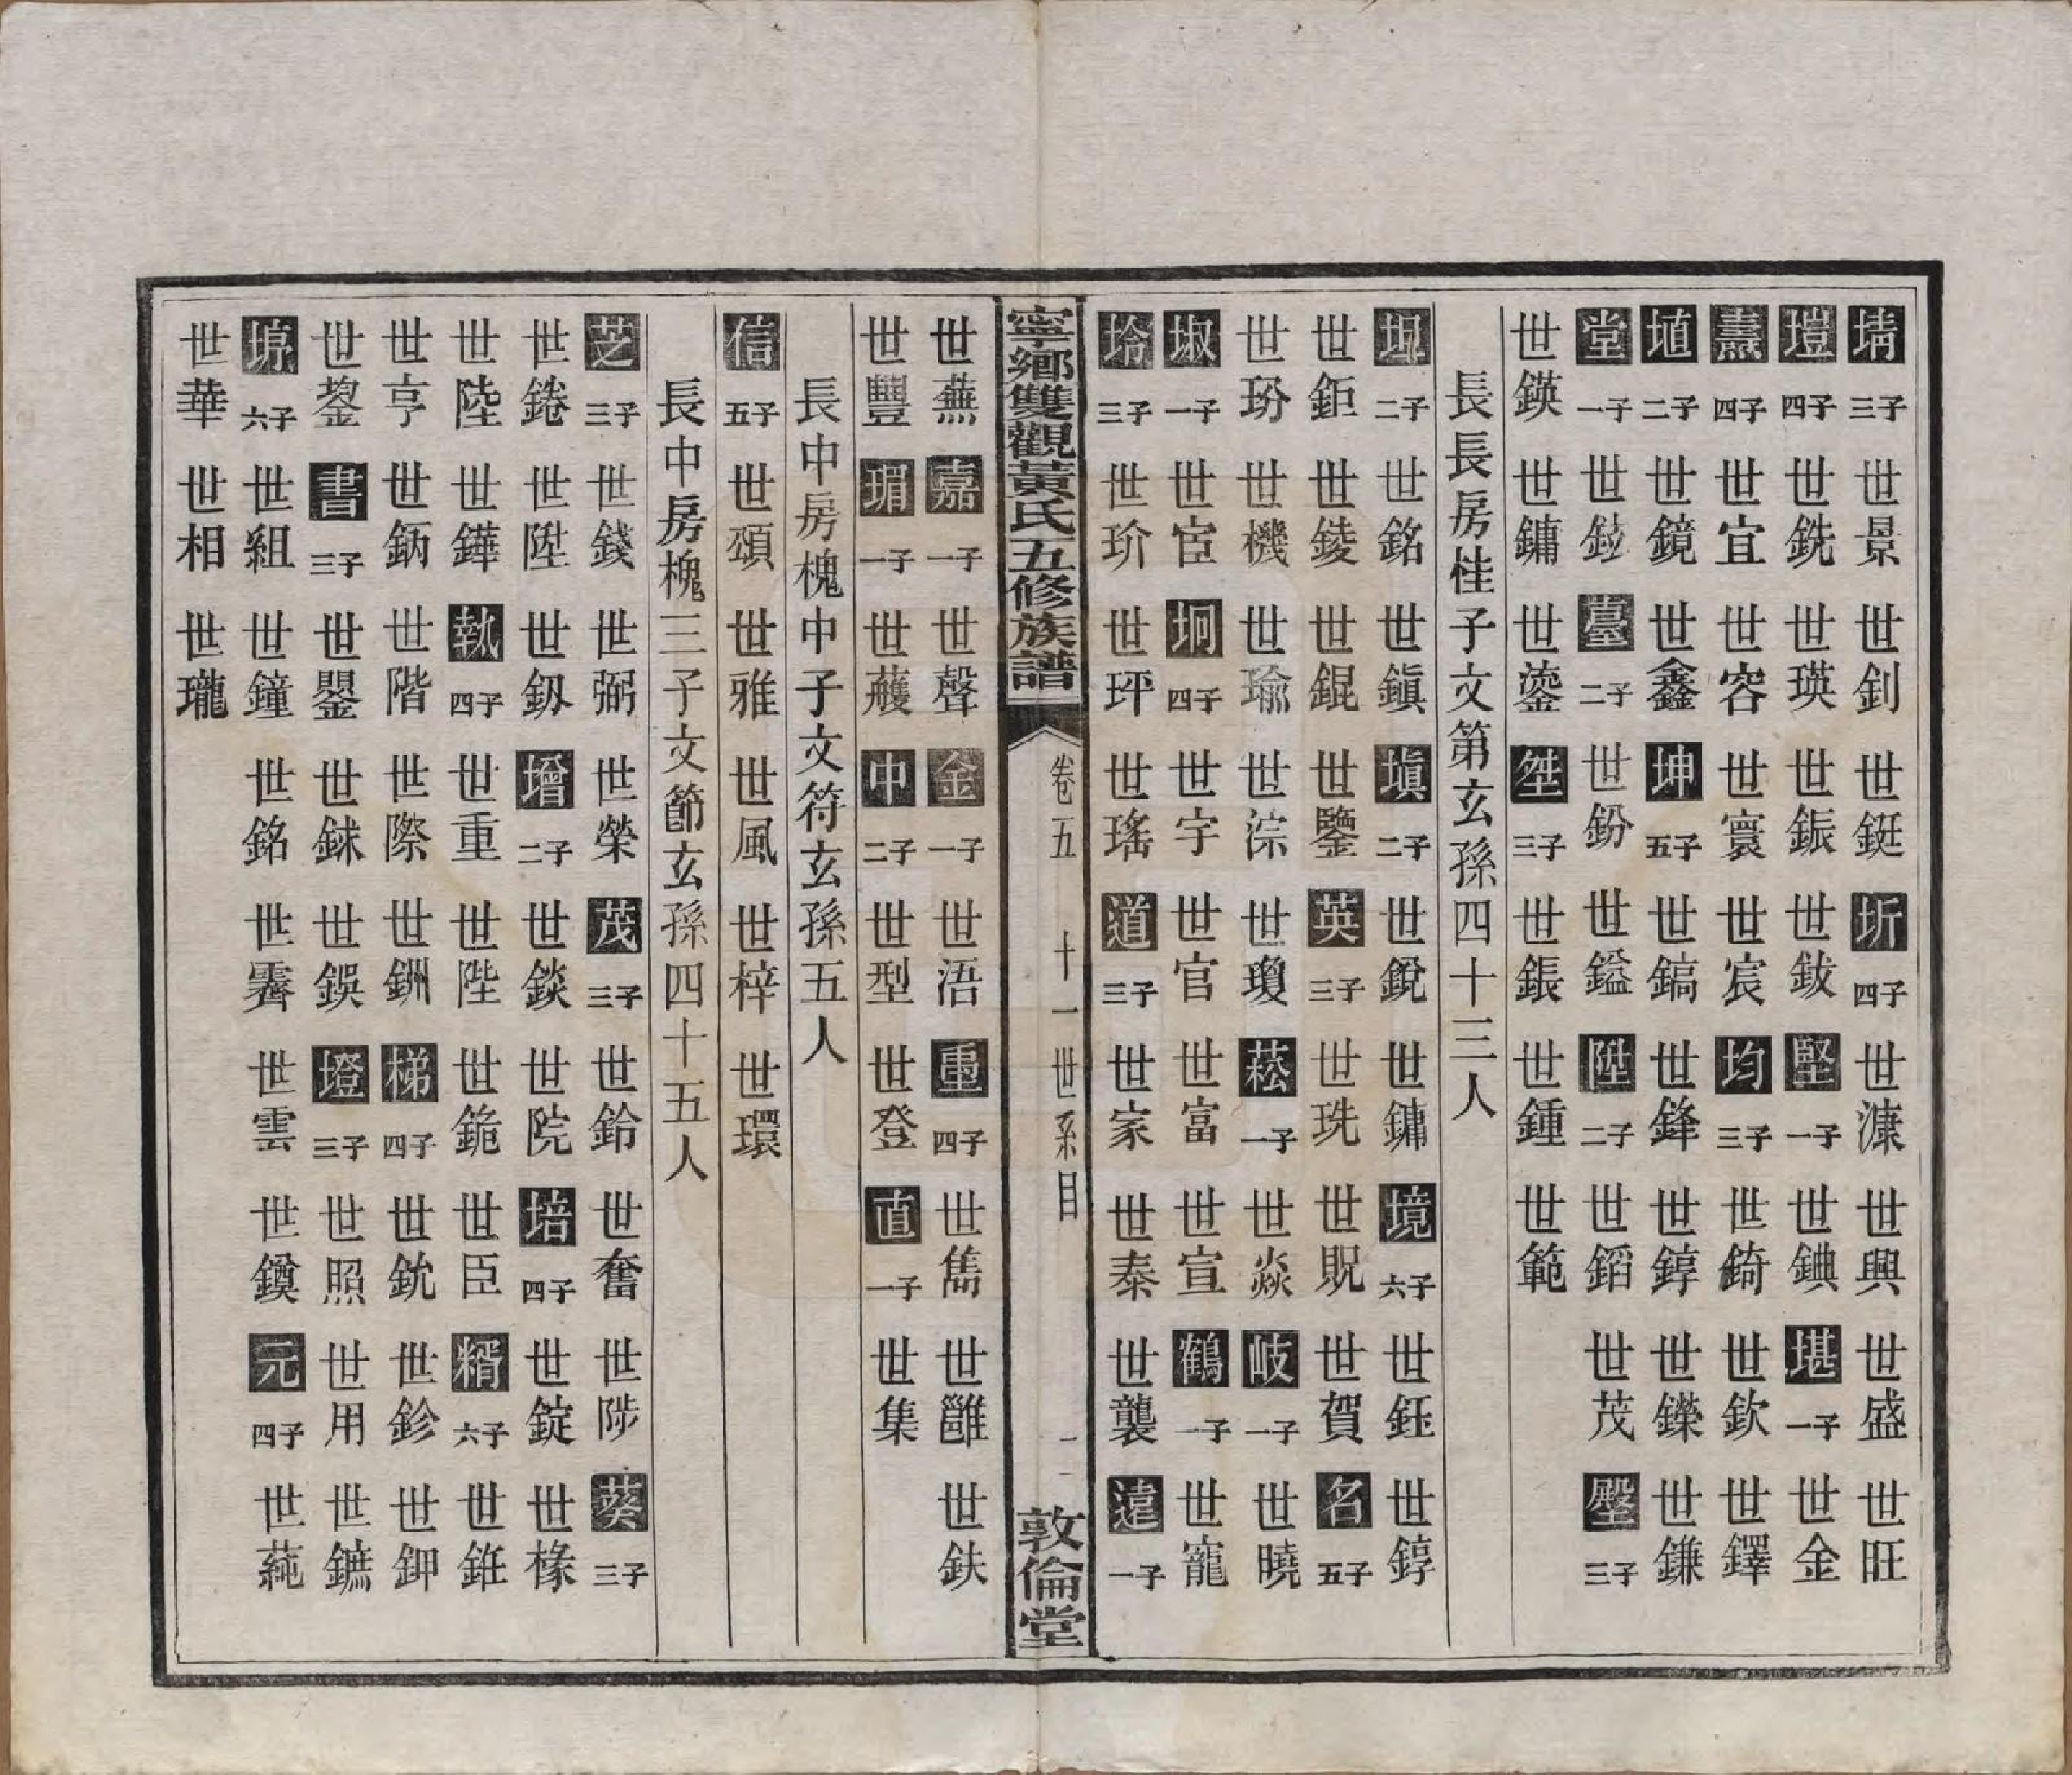 堉三子 世景 世釗 世鋌 圻四子 世漮 世興 世盛 世旺
塏四子 世銑 世瑛 世鋠 世鈸 堅一子 世錪 堪一子 世金
燾四子 世宜 世容 世寰 世宸 均三子 世錡 世欽 世鐸
埴二子 世鏡 世鑫 坤五子 世鎬 世鋒 世錞 世鑅 世鎌
堂一子 世鉝 臺二子 世鈖 世鎰 陞二子 世鎐 世茂 壂三子
世鍈 世鏞 世鎏 垡三子 世鋹 世鍾 世範
長長房桂子文第玄孫四十三人
坥二子 世銘 世鎭 塡二子 世銳 世鏞 境六子 世鈺 世錞
世鉅 世錂 世錕 世鑒 英三子 世珗 世貺 世賀 名五子
世玢 世機 世瑜 世淙 世瓊 菘一子 世焱 岐一子 世曉
埱一子 世宦 坰四子 世宇 世官 世富 世宣 鶴一子 世寵
坽三子 世玠 世玶 世瑤 道三子 世家 世泰 世襲 遠一子
寧鄉雙觀黃氏五修族譜 卷五 十一世系目 二 敦倫堂
世蕪 嘉一子 世聲 金一子 世浯 重四子 世雋 世雝 世鈇
世豐 瑂一子 世蘐 中二子 世型 世登 直一子 世集
長中房槐中子文符玄孫五人
信五子 世頌 世雅 世風 世梓 世環
長中房槐三子文節玄孫四十五人
芝三子 世錢 世弼 世榮 茂三子 世鈴 世奮 世陟 葵三子
世錈 世陞 世釼 增二子 世錟 世院 培四子 世錠 世椽
世陸 世鏵 執四子 世重 世陛 世銫 世臣 楈六子 世錐
世亨 世鈵 世階 世際 世銂 梯四子 世鈂 世鉁 世鉀
世鋆 書三子 世瞾 世銶 世鋘 墱三子 世照 世用 世鑣
塬六子 世組 世鐘 世銘 世霽 世雲 世鏌 元四子 世蒓
世華 世相 世瓏